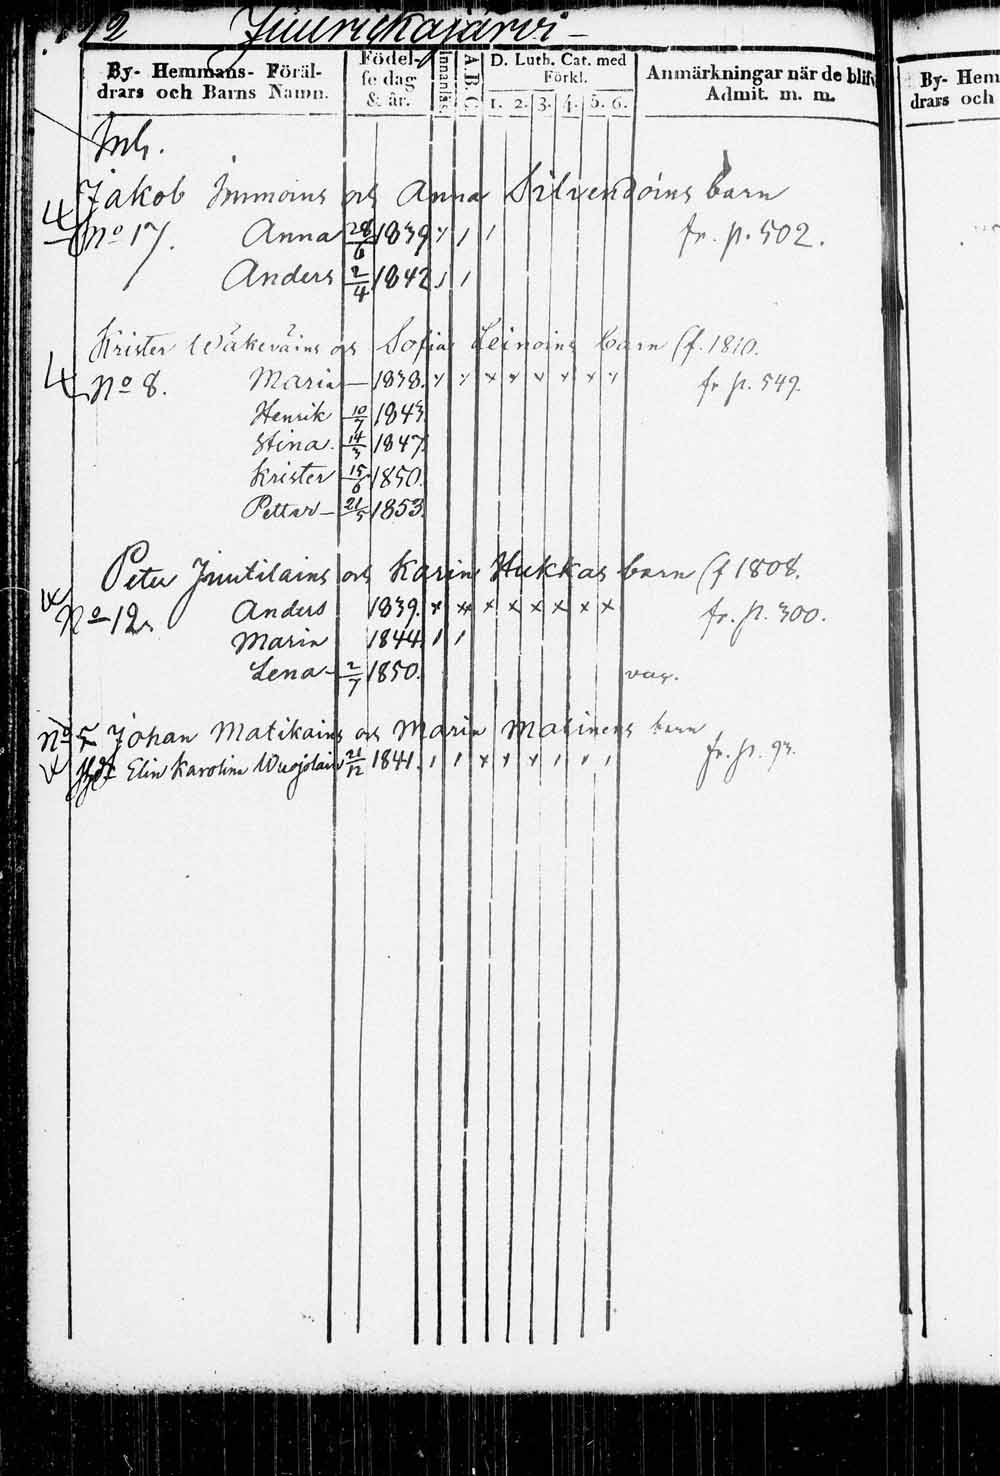 Juurickajärvi
By- Hemmans- Föräl-
drars och Barns Namn.
Födel-
se dag
& år.
Innanläs.
A.B.C.
D. Luth. Cat. med
Förkl.
1. 2. 3. 4. 5. 6.
Anmärkningar när de blif
Admit. m. m.
By- Hem
drars och
Inh.
Jakob Immoins och Anna Silvendoins barn
No 17. Anna 28/6 1839 fr. p. 502.
Anders 2/4 1842
Krister Wäkeväins och Sofia Leinoins barn (f. 1810.
No 8. Maria — 1838. x x x x x x x x fr p. 549.
Henrik 10/7 1843.
Stina. 14/3 1847.
Krister 15/6 1850.
Pettar — 21/5 1853.
Peter Juutilains och Karin Hukkas barn (f 1808.
No 12. Anders 1839. x x x x x x x x fr. p. 300.
Maria 1844.
Lena — 2/7 1850. vac.
No 5 Johan Matikains och Maria Matinens barn
Elin Karolina Wuojolain 21/12 1841. fr. p. 93.